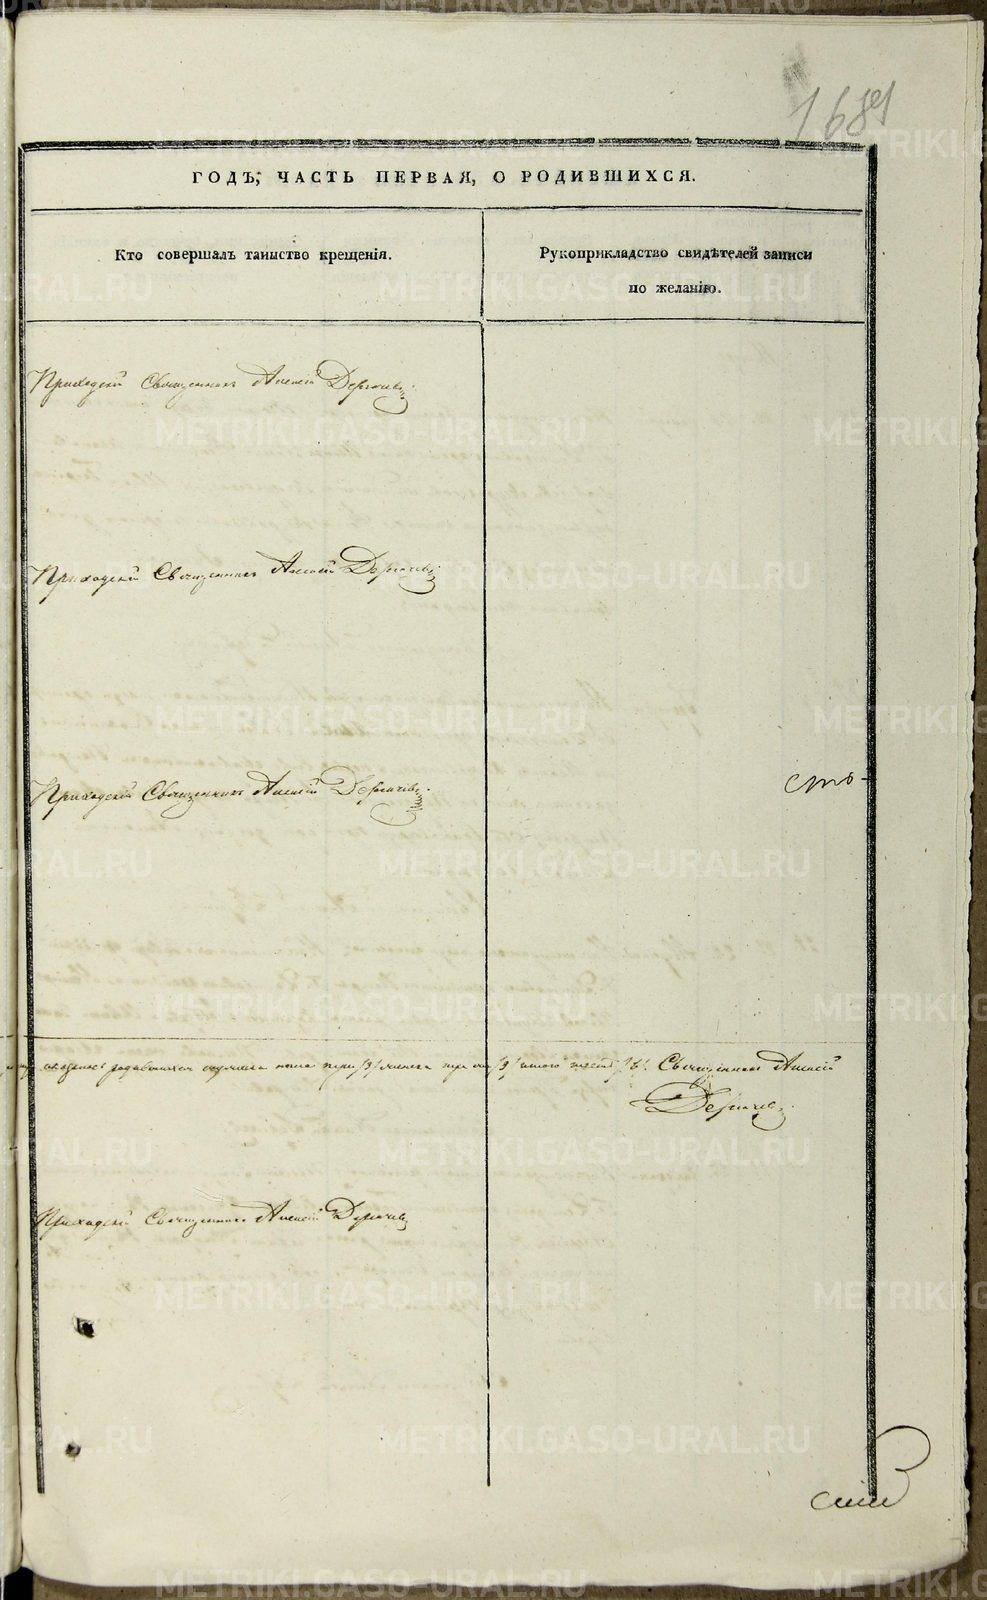 1689
ГОДЪ, ЧАСТЬ ПЕРВАЯ, О РОДИВШИХСЯ.
Кто совершалъ таинство крещенія.
Рукоприкладство свидѣтелей записи
по желанію.
Приходскій Священникъ Алексій Дергачевъ
Приходскій Священникъ Алексій Дергачевъ
Приходскій Священникъ Алексій Дергачевъ
сто-
родившихся мужеска пола женска Священникъ Алексій
Дергачевъ
Приходскій Священникъ Алексій Дергачевъ
METRIKI.GASO-URAL.RU